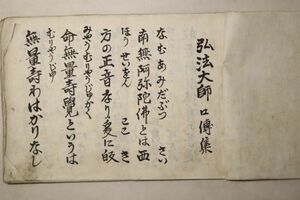 弘法大師 口傳集
なむあみだぶつ さい
南無阿弥陀佛とは西
ほう せいをん ここ き
方の正音なり爰に皈
みやうむりやうじゆかく
命無量壽覺というは
むりやうじゆ
無量壽わはかりなし